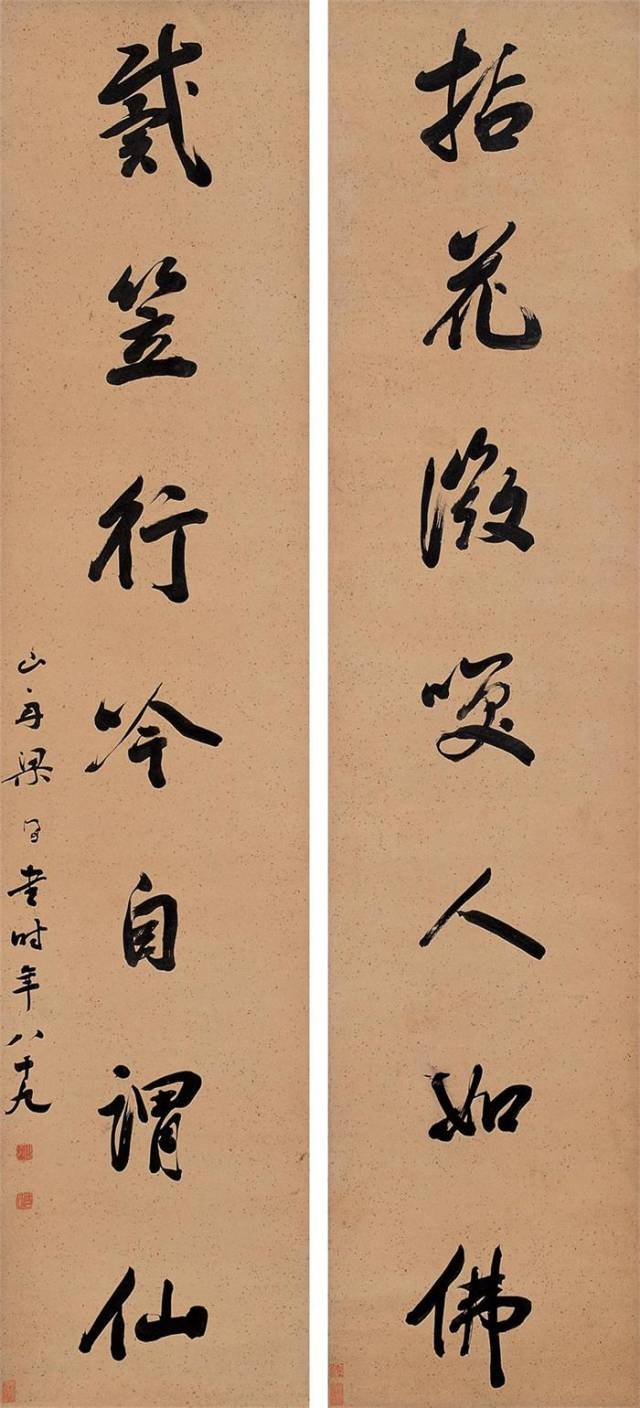 拈花微唉人如佛
戴笠行吟自謂仙
山舟梁同書時年八十九